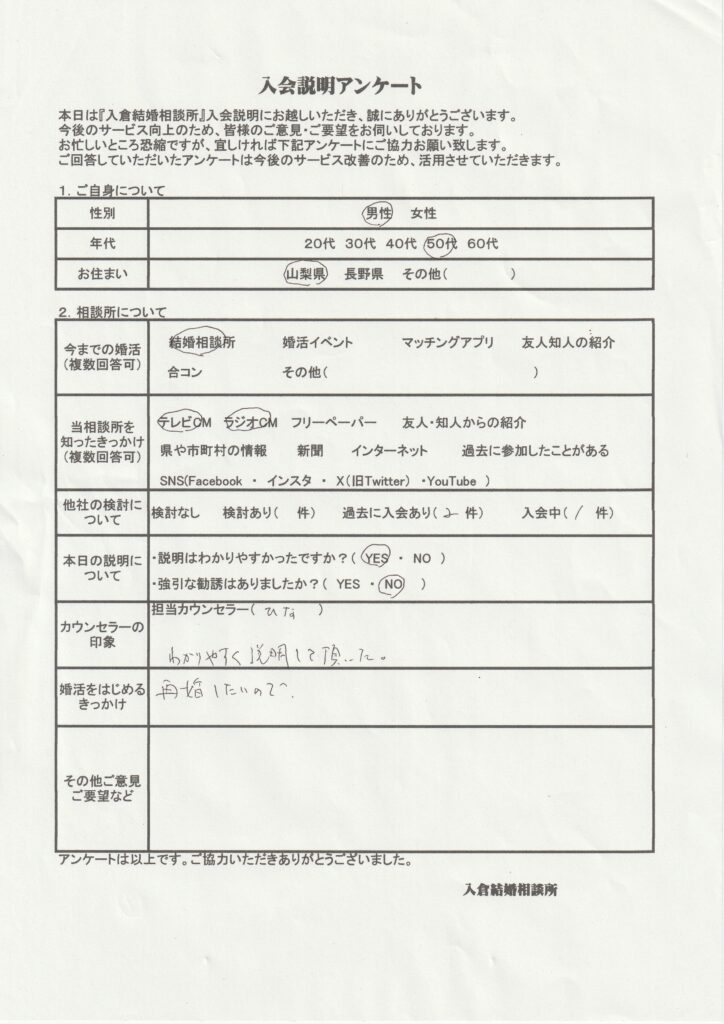 入会説明アンケート
本日は『入倉結婚相談所』入会説明にお越しいただき、誠にありがとうございます。
今後のサービス向上のため、皆様のご意見・ご要望をお伺いしております。
お忙しいところ恐縮ですが、宜しければ下記アンケートにご協力お願い致します。
ご回答していただいたアンケートは今後のサービス改善のため、活用させていただきます。
1. ご自身について
性別 男性 女性
年代 20代 30代 40代 50代 60代
お住まい 山梨県 長野県 その他( )
2. 相談所について
今までの婚活
(複数回答可)
結婚相談所 婚活イベント マッチングアプリ 友人知人の紹介
合コン その他( )
当相談所を
知ったきっかけ
(複数回答可)
テレビCM ラジオCM フリーペーパー 友人・知人からの紹介
県や市町村の情報 新聞 インターネット 過去に参加したことがある
SNS(Facebook ・ インスタ ・ X(旧Twitter) ・YouTube )
他社の検討に
ついて
検討なし 検討あり( 件) 過去に入会あり( 2 件) 入会中( / 件)
本日の説明に
ついて
・説明はわかりやすかったですか?( YES ・ NO )
・強引な勧誘はありましたか?( YES ・ NO )
カウンセラーの
印象
担当カウンセラー( ひな )
わかりやすく説明して頂いた。
婚活をはじめる
きっかけ
再婚したいので
その他ご意見
ご要望など
アンケートは以上です。ご協力いただきありがとうございました。
入倉結婚相談所